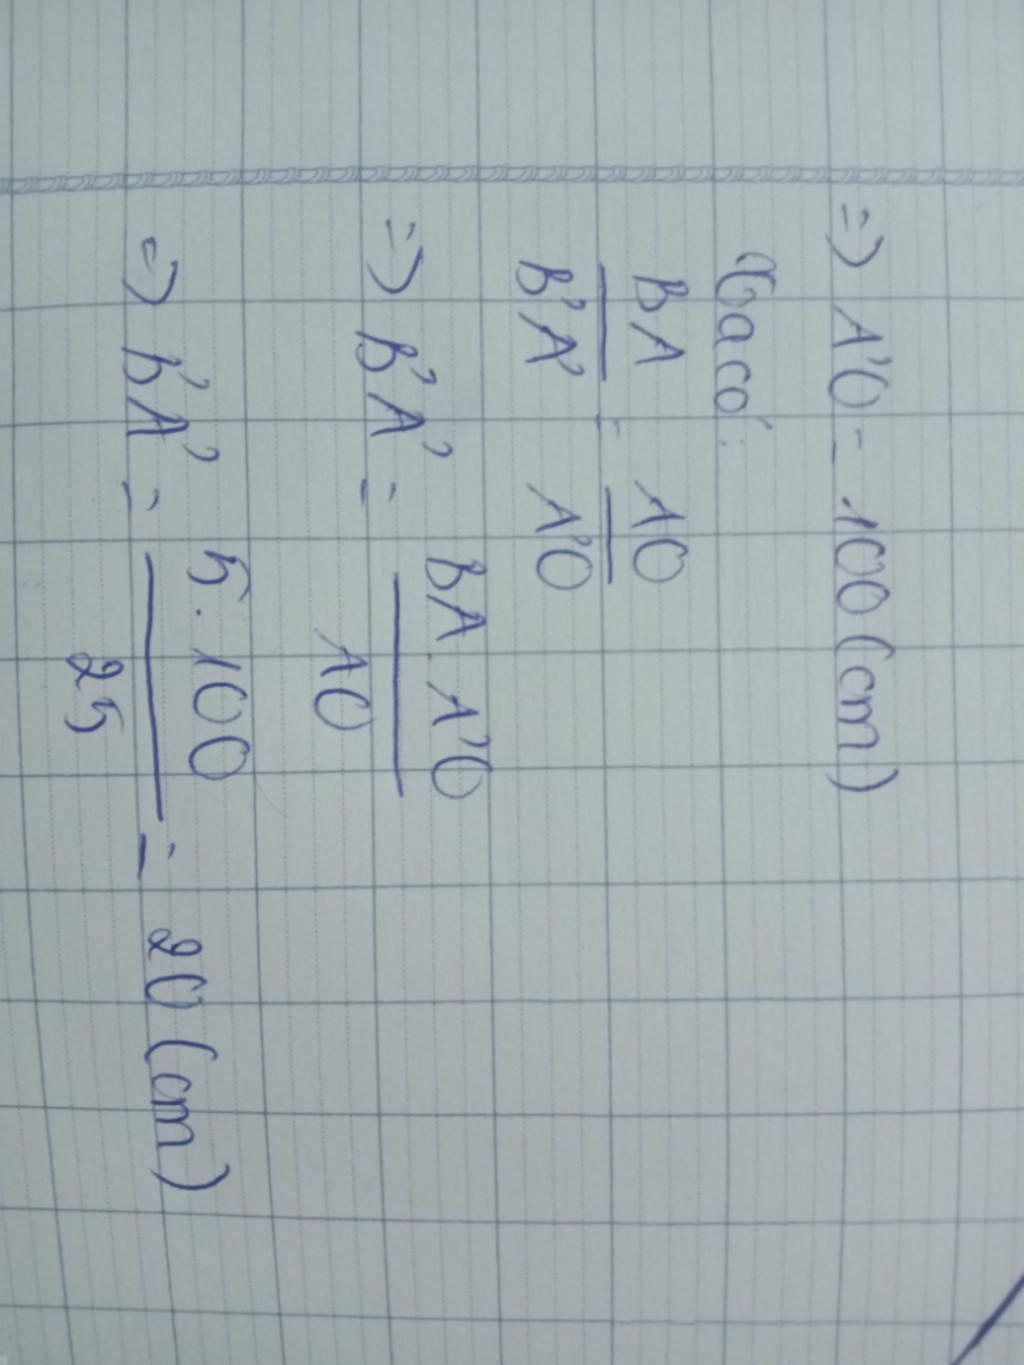 => A'O = 100 (cm)
Ta có:
BA/B'A' = AO/A'O
=> B'A' = BA.A'O/AO
=> B'A' = 5.100/25 = 20 (cm)